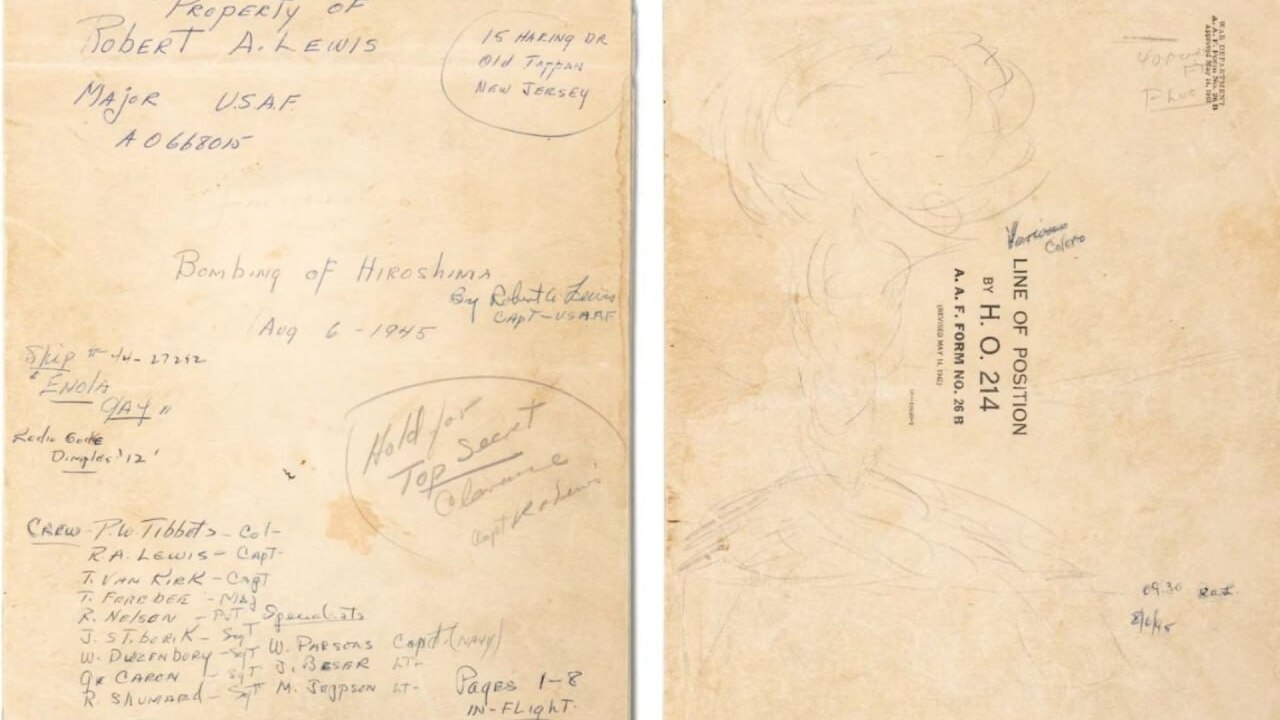 Property of
Robert A. Lewis
Major U.S.A.F.
AO668015
15 Haring Dr
Old Tappan
New Jersey
Bombing of Hiroshima
By Robert A. Lewis
Capt-USAAF
Aug 6-1945
Ship # 44-27292
"Enola
Gay"
Radio Code
Dimples '12'
Hold for
Top Secret
Clearance
Capt R A Lewis
Crew-P.W Tibbets-Col-
R.A. Lewis-Capt-
T. Van Kirk-Capt
T. Ferebee-Maj
R. Nelson-Pvt
J. Stiborik-Sgt
W. Duzenbury-Sgt
G. Caron-Sgt
R. Shumard-Sgt
Specialists
W. Parsons Capt. (Navy)
J. Beser Lt-
M. Jeppson Lt-
Pages 1-8
In-Flight.
WAR DEPARTMENT
A. A. F. Form No. 26 B
Various
Colors
LINE OF POSITION
BY H. O. 214
A. A. F. FORM NO. 26 B
(REVISED MAY 14, 1942)
09:30
8/6/45